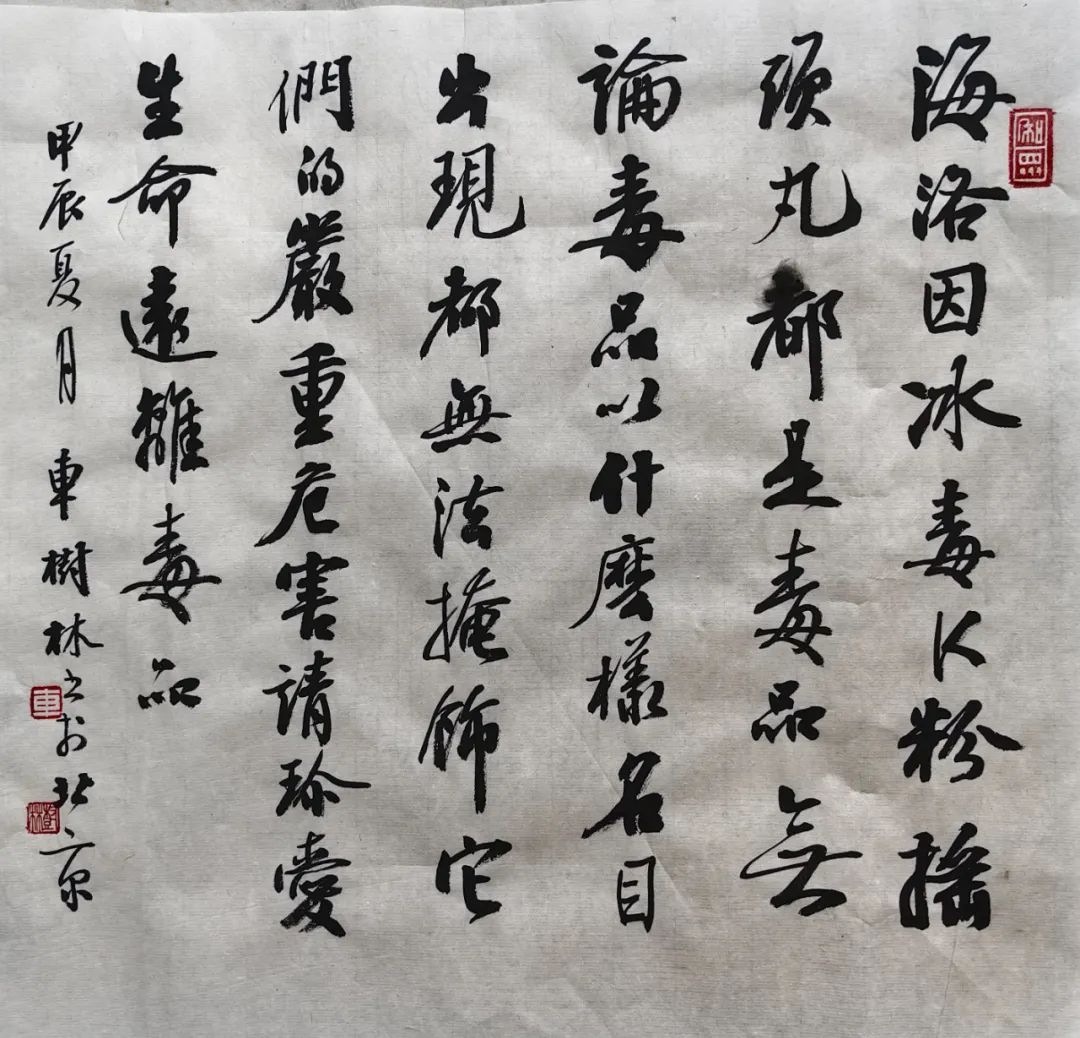 海洛因冰毒K粉摇
頭丸都是毒品無
論毒品以什麽樣名目
出現都無法掩飾它
們的嚴重危害請珍愛
生命遠離毒品
甲辰夏月 車樹林书於北京
車